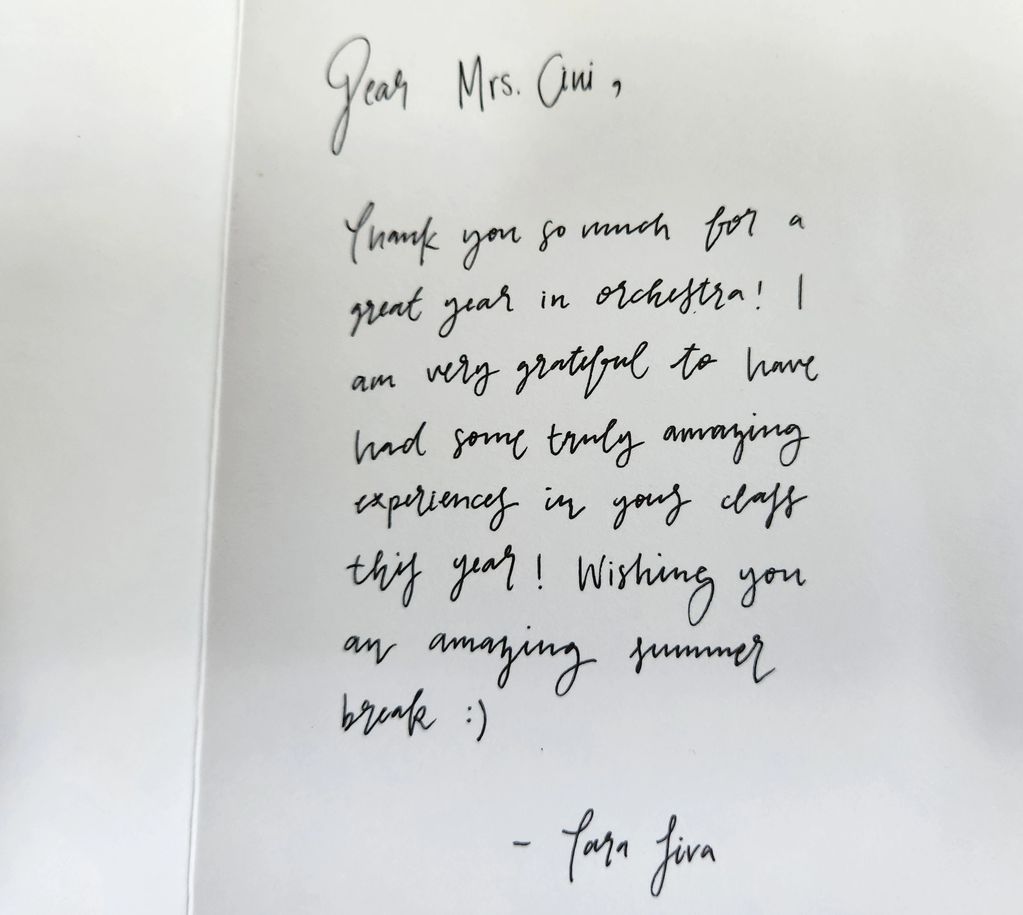 Dear Mrs. Ani,
Thank you so much for a
great year in orchestra! I
am very grateful to have
had some truly amazing
experiences in your class
this year! Wishing you
an amazing summer
break :)
- Tara Siva